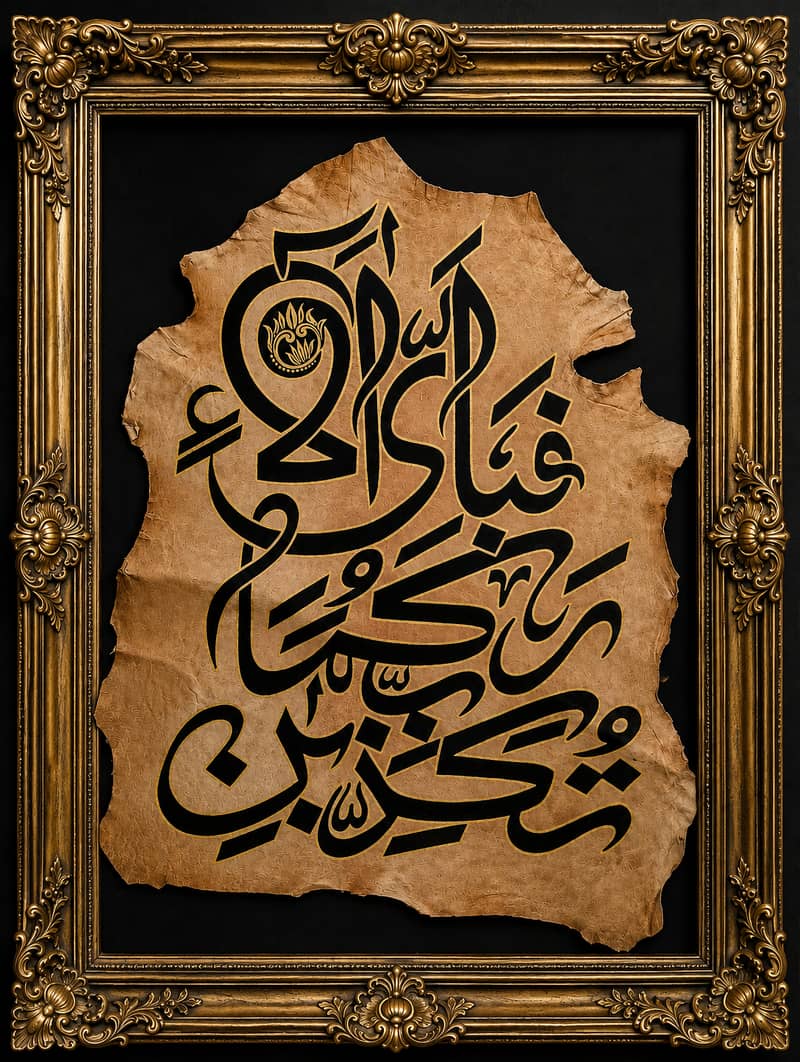 فَبِأَىِّ آلَاءِ
رَبِّكُمَا
تُكَذِّبَانِ